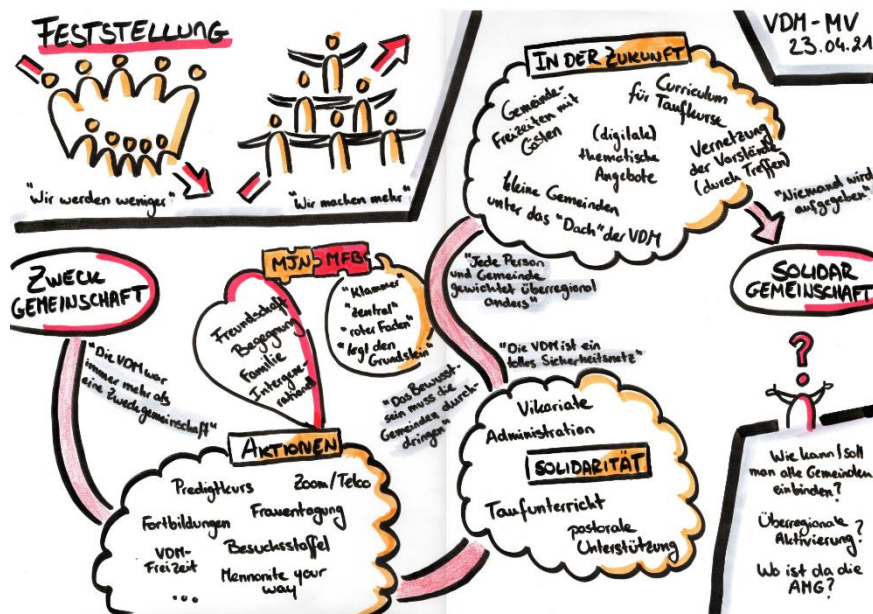 FESTSTELLUNG
"Wir werden weniger"
"Wir machen mehr"
VDM-MV
23.04.21
IN DER ZUKUNFT
Gemeinde-
Freizeiten mit
Gästen
Curriculum
für Taufkurse
(digitale)
thematische
Angebote
Vernetzung
der Vorstände
(durch Treffen)
kleine Gemeinden
unter das "Dach" der VDM
"Niemand wird
aufgegeben"
ZWECK
GEMEINSCHAFT
MJN
MFB
Freundschaft
Begegnung
Familie
Intergene-
rational
"Klammer"
"zentral"
"roter Faden"
"legt den
Grundstein"
"Jede Person
und Gemeinde
gewichtet überregional
anders"
SOLIDAR
GEMEINSCHAFT
"Die VDM war
immer mehr als
eine Zweckgemeinschaft"
"Das Bewusst-
sein muss die
Gemeinden durch-
dringen"
"Die VDM ist ein
tolles Sicherheitsnetz"
AKTIONEN
Predigtkurs
Zoom/Telco
Fortbildungen
Frauentagung
VDM-
Freizeit
Besuchsstaffel
Mennonite your
way
...
Vikariate
Administration
SOLIDARITÄT
Taufunterricht
pastorale
Unterstützung
?
Wie kann/soll
man alle Gemeinden
einbinden?
Überregionale
Aktivierung?
Wo ist da die
AMG?